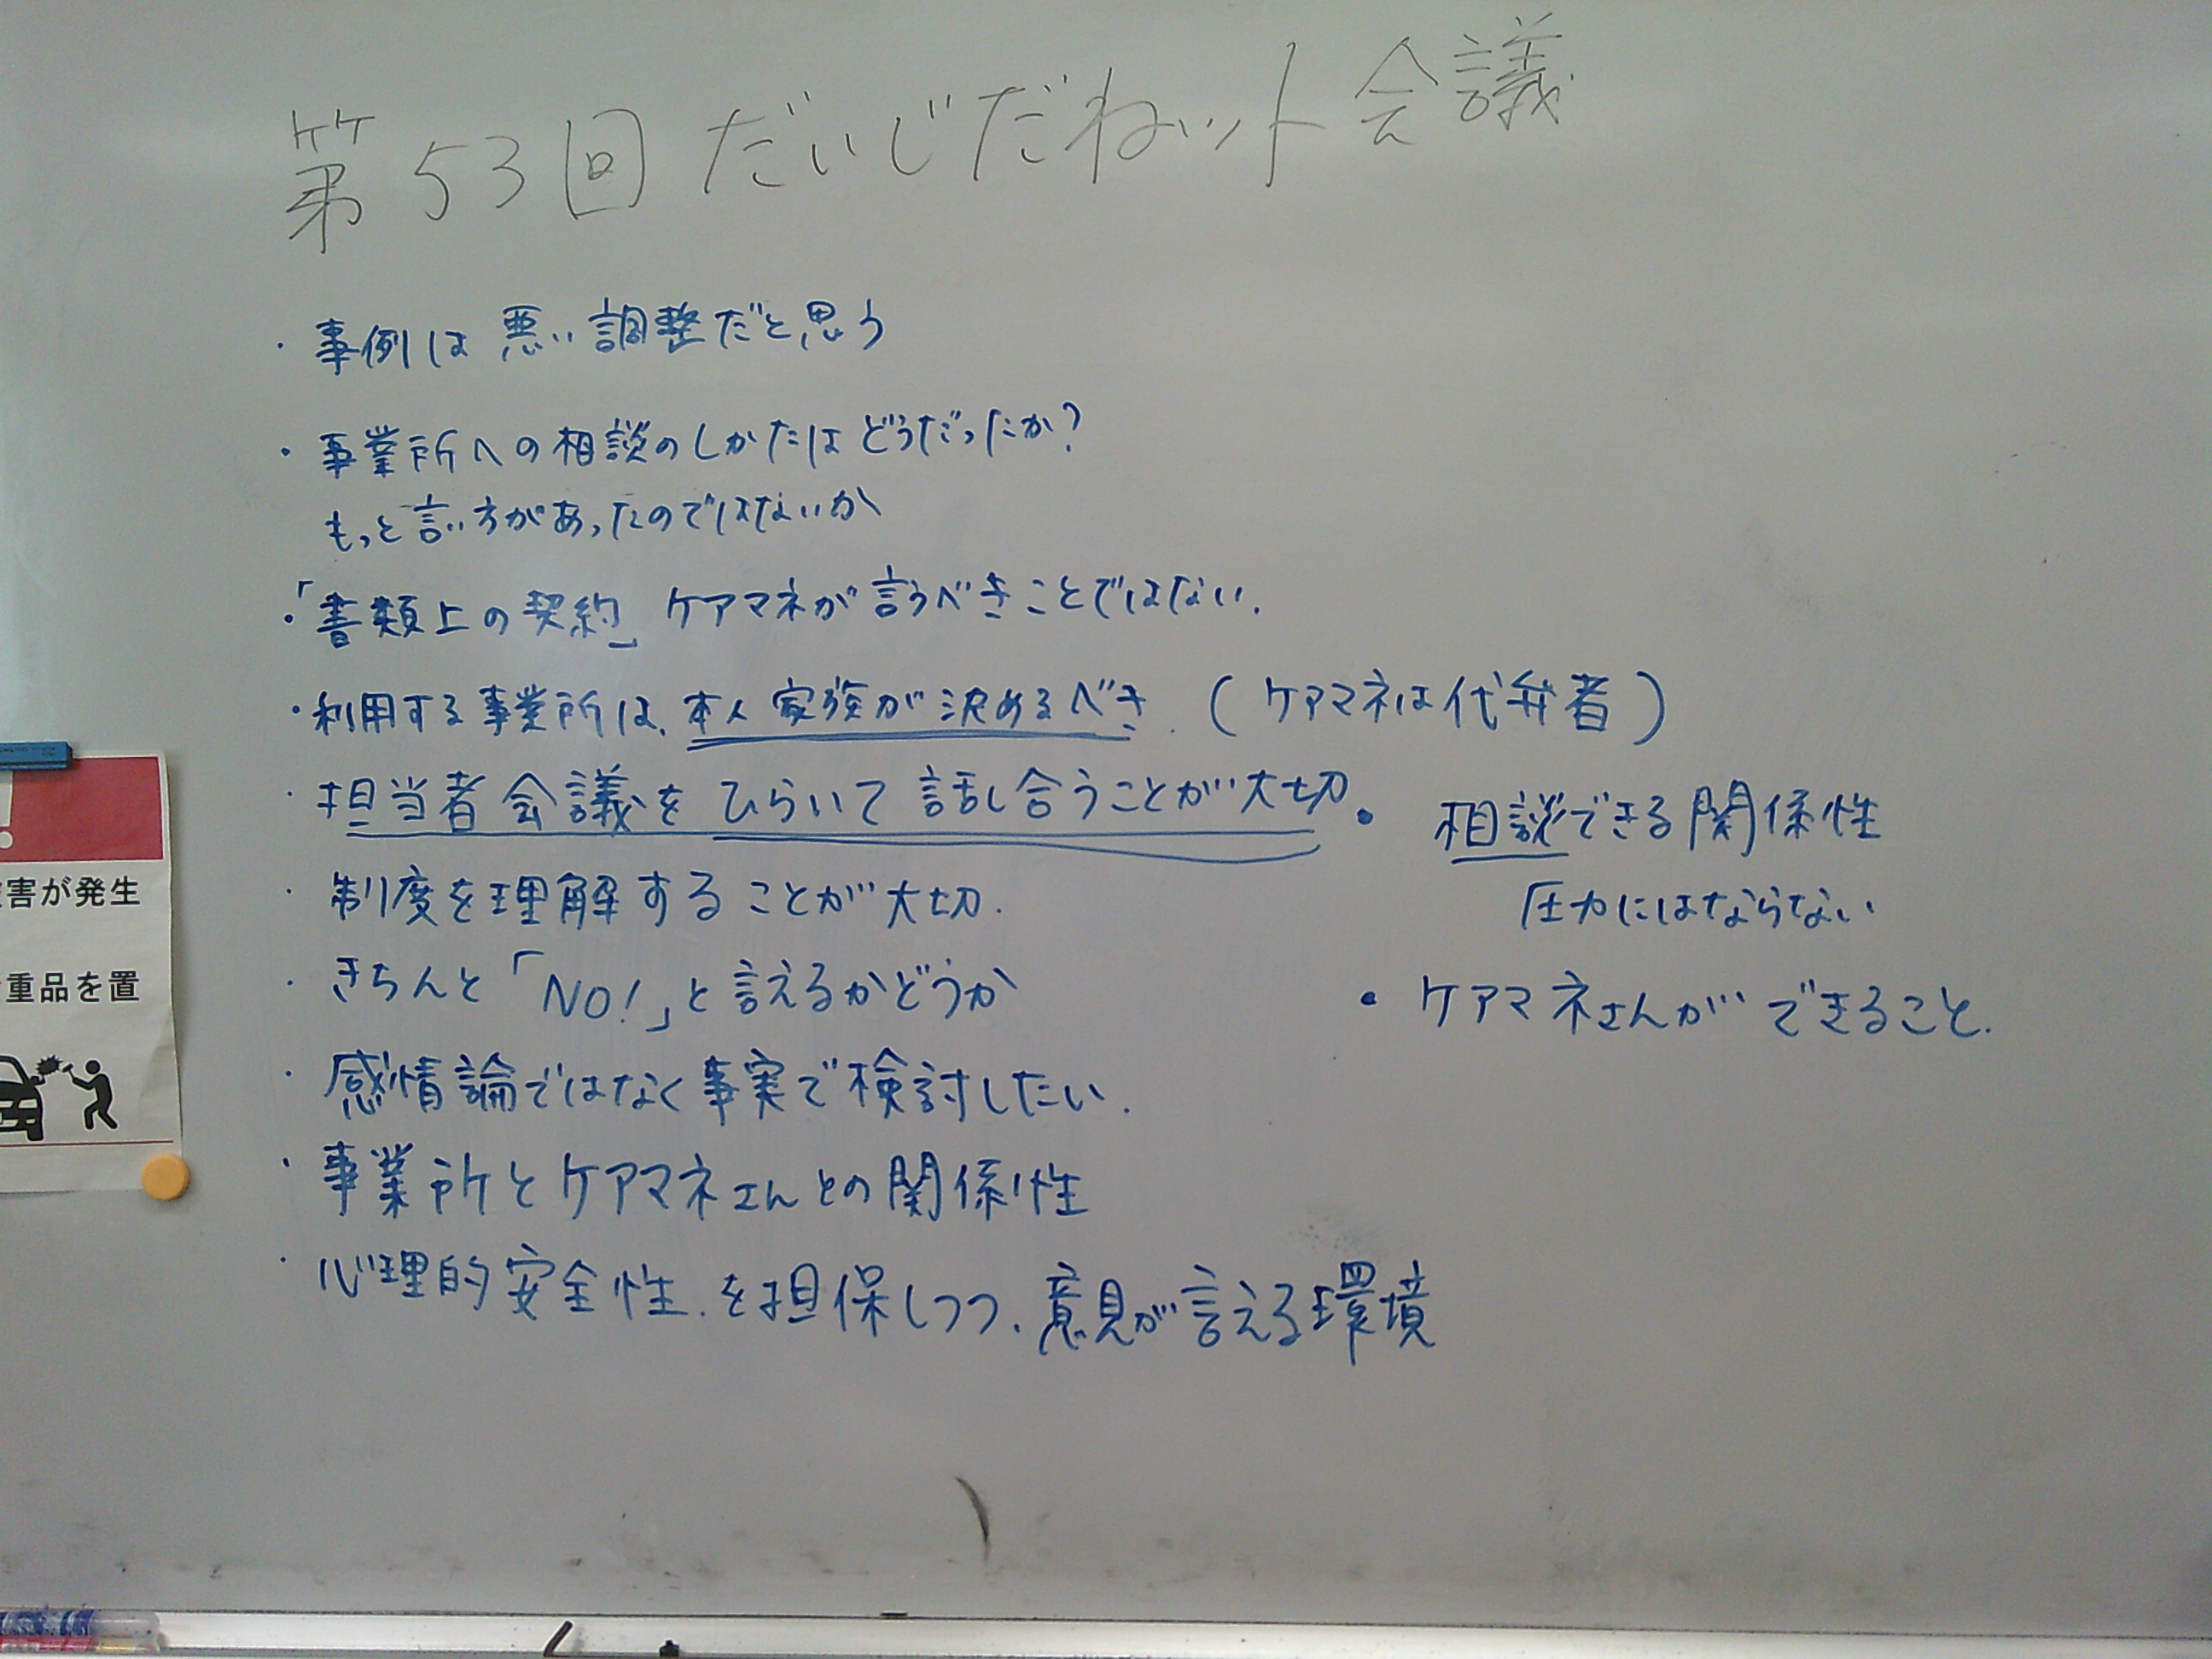 第53回 だいじだねット会議
・事例は悪い調整だと思う
・事業所への相談のしかたはどうだったか?
もっと言い方があったのではないか
・「書類上の契約」ケアマネが言うべきことではない.
・利用する事業所は、本人家族が決めるべき.(ケアマネは代弁者)
・担当者会議をひらいて話し合うことが大切
・制度を理解することが大切.
・きちんと「NO!」と言えるかどうか
・感情論ではなく事実で検討したい.
・事業所とケアマネさんとの関係性
・心理的安全性.を担保しつつ、意見が言える環境
・相談できる関係性
圧力にはならない
・ケアマネさんができること.
害が発生
重品を置